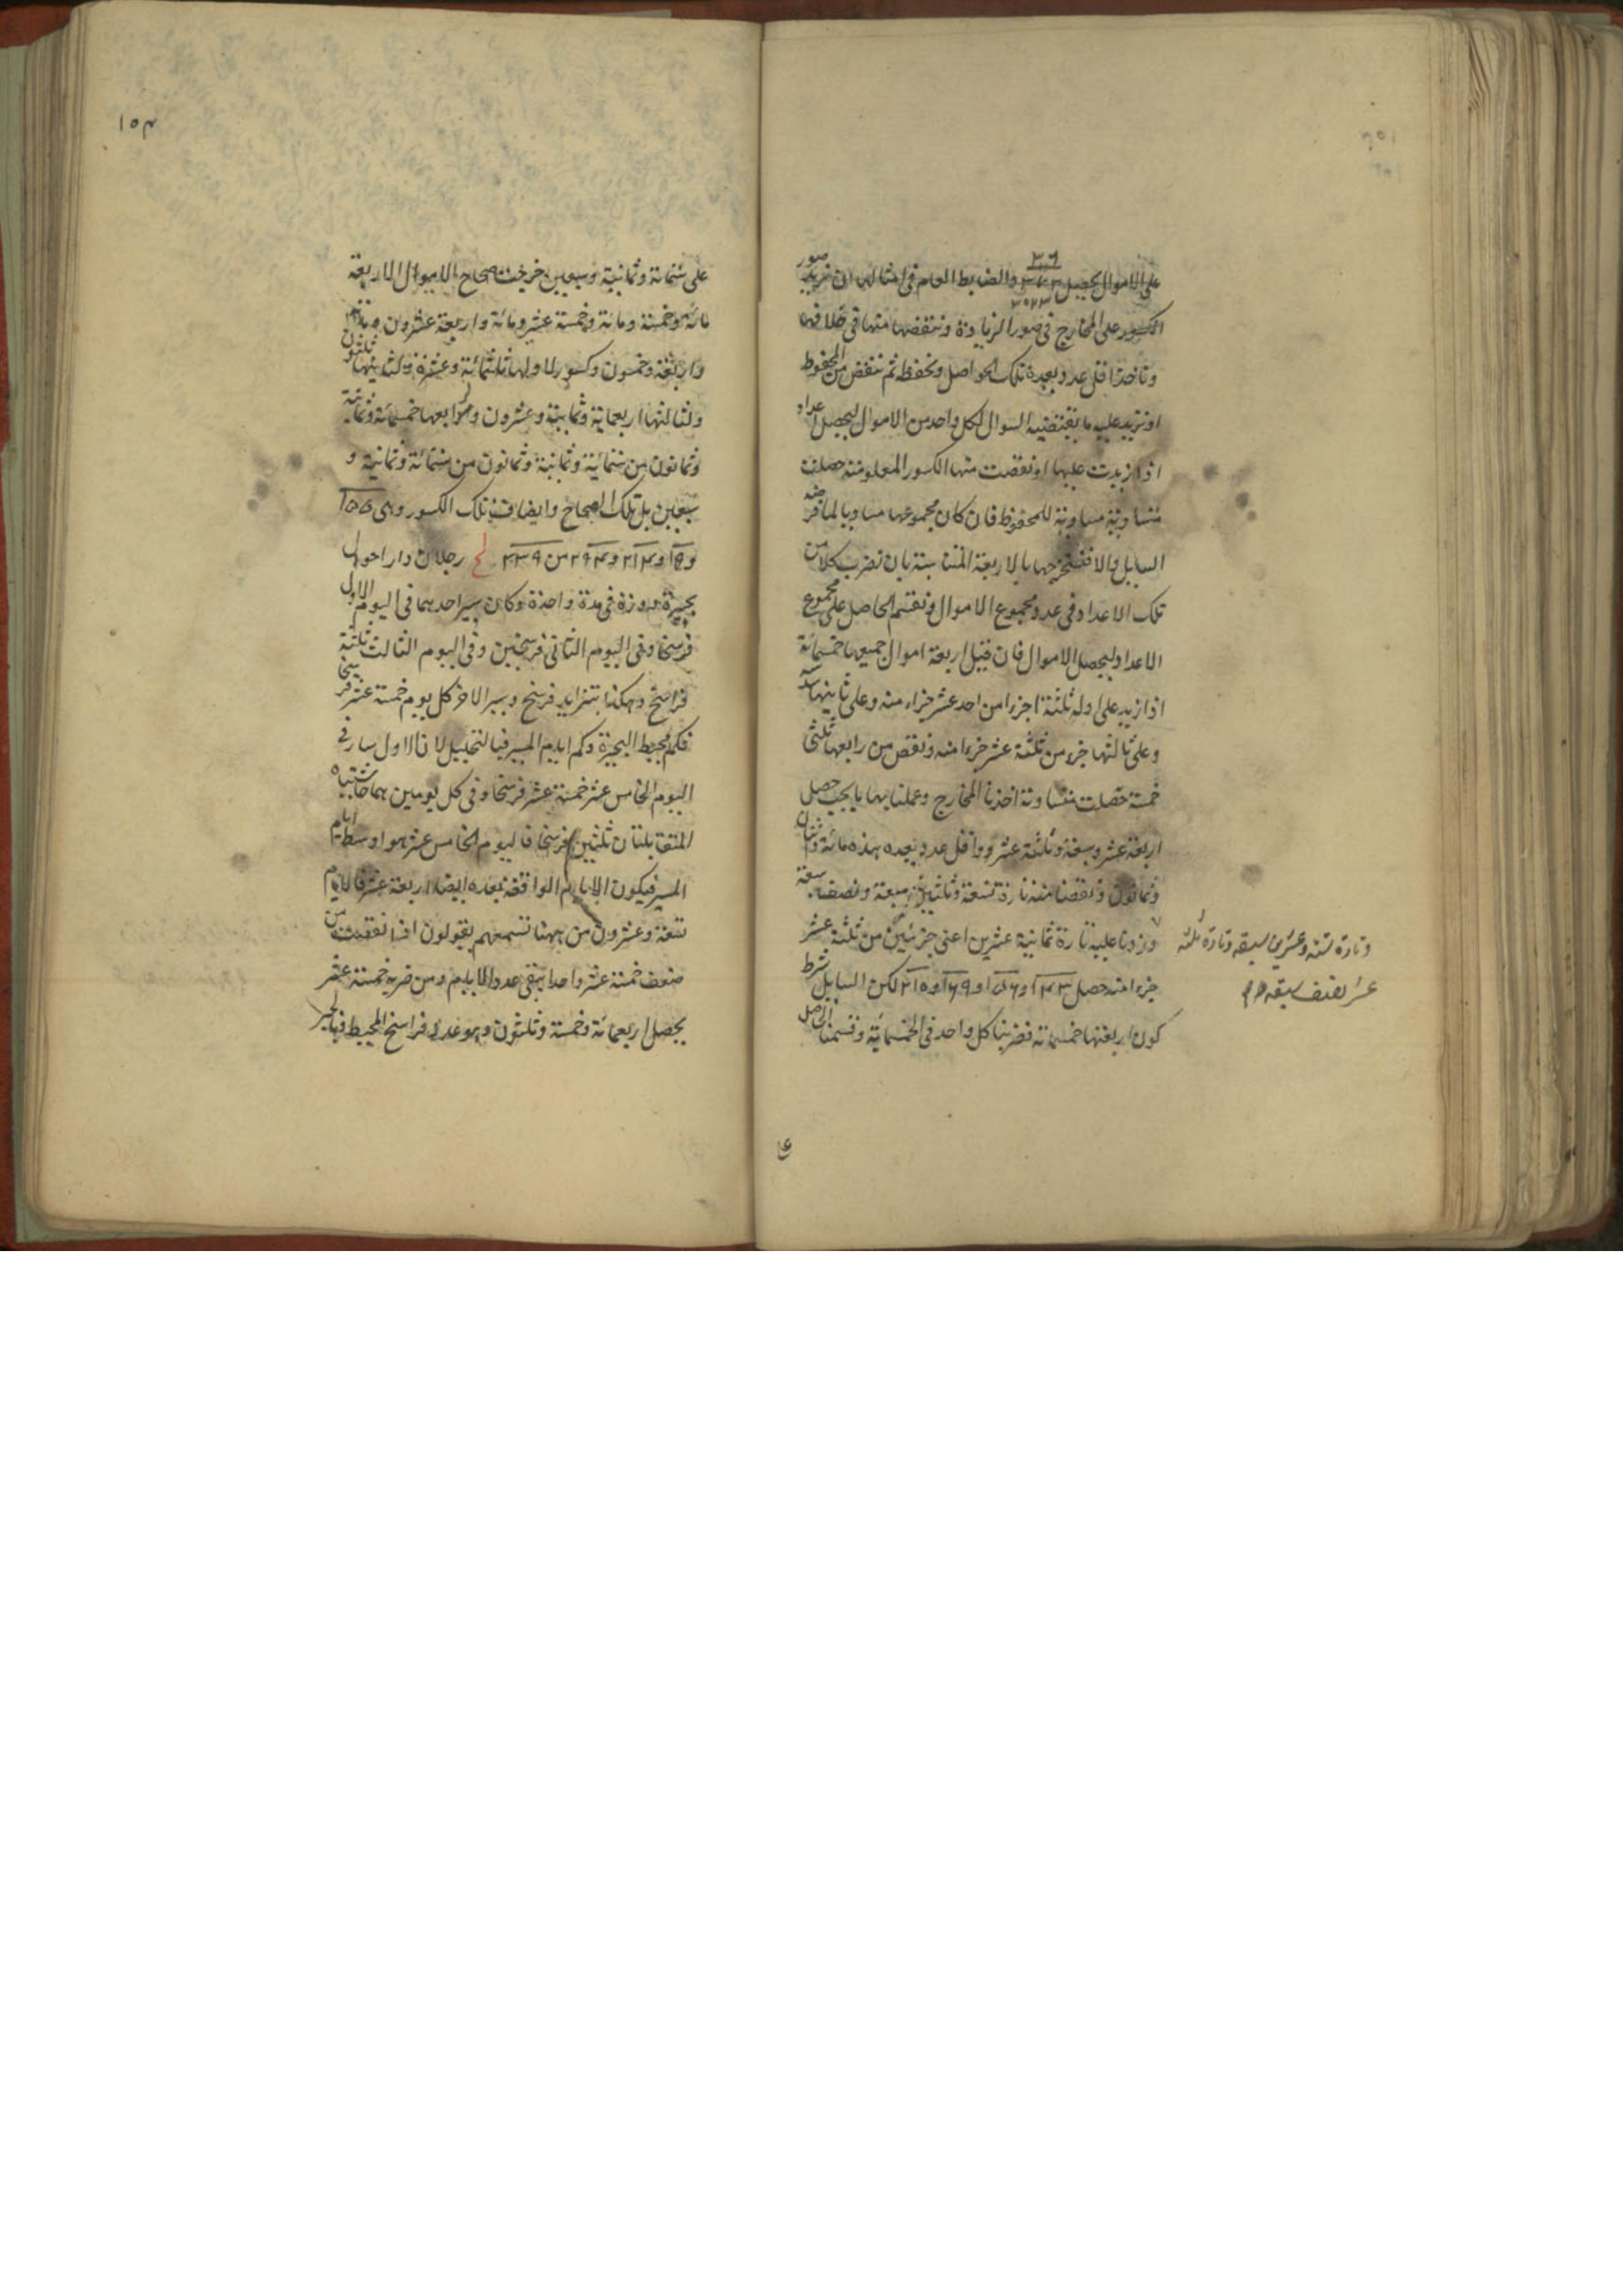 على الاموال ليحصل والضابط العام فى امثالها ان نزيد صور
الكسور على المخارج فى صور الزيادة وننقصها منها فى خلافها
وناخذ اقل عدد يعده تلك الحواصل ونحفظ ثم ننقص من المحفوظ
او نزيد عليه ما يقتضيه السوال لكل واحد من الاموال ليحصل اعداد
اذا زيدت عليها او نقصت منها الكسور المعلومة حصلت
متساوية مساوية للمحفوظ فان كان مجموعها مساويا لما فرضه
السايل والا فنستخرجها بالاربعة المتناسبة بان نضرب كلا من
تلك الاعداد فى عدد مجموع الاموال ونقسم الحاصل على مجموع
الاعداد ليحصل الاموال فان قيل اربعة اموال جميعها خمسمائة
اذا زيد على اوله ثلثة اجزاء من احد عشر جزاء منه وعلى ثانيها سدسه
وعلى ثالثها جزء من ثلثة عشر جزءا منه ونقص من رابعها ثلثى
خمسه حصلت متساوية اخذنا المخارج وعملنا بها ما يجب حصل
اربعة عشر وسبعة وثلثة عشر واقل عدد يعده هذه مائة واثنان
وثمانون ونقصنا منه تارة تسعة وثلثين سبعة ونصف سبعة
وزدنا عليه تارة ثمانية عشرين اعنى جزئين من ثلثة عشر
جزءا منه حصل ١٤٣ و١٥٦ و١٦٩ و٢١٠ لكن السايل شرط
كون اربعتها خمسمائة فضربنا كل واحد فى الخمسمائة وقسمنا الحاصل
وتارة ستة وعشرين سبعه وتارة ثلثه
عشر نصف سبعه
على ستمائة وثمانية وسبعين خرجت صحاح الاموال الاربعة
مائة وخمسة ومائة وخمسة عشر ومائة واربعة عشرون ومائة
واربعة وخمسون وكسور لاولها ثلثمائة وعشرة ولثانيها ثلثون
ولثالثها اربعمائة وثمانية وعشرون ولرابعها خمسمائة وثمانية
وثمانون من ستمائة وثمانية وثمانون من ستمائة وثمانية و
سبعين بل تلك الصحاح وايضا فتلك الكسور وهى ١٥٥
و١٥ و٢١٤ و٢٩٤ من ٣٣٩ لح رجلان دار احول
بحيرة دورة فى مدة واحدة وكان سير احدهما فى اليوم الاول
فرسخا وفى اليوم الثانى فرسخين وفى اليوم الثالث ثلثة
فراسخ وهكذا بتزايد فرسخ وسير الاخر كل يوم خمسة عشر فرسخا
فكم محيط البحيرة وكم ايام المسير فبالتحليل لان الاول سار فى
اليوم الخامس عشر خمسة عشر فرسخا وفى كل يومين هما حاشيتاه
المتقابلتان ثلثين فرسخا فاليوم الخامس عشر هو اوسط ايام
المسير فيكون الايام الواقعة بعده ايضا اربعة عشر فالايام
تسعة وعشرون من ههنا تسمعهم يقولون اذا نقصت من
ضعف خمسة عشر واحدا يبقى عدد الايام ومن ضربه خمسة عشر
يحصل اربعمائة وخمسة وثلثون وهو عدد فراسخ المحيط فبالجبر
١٥٤